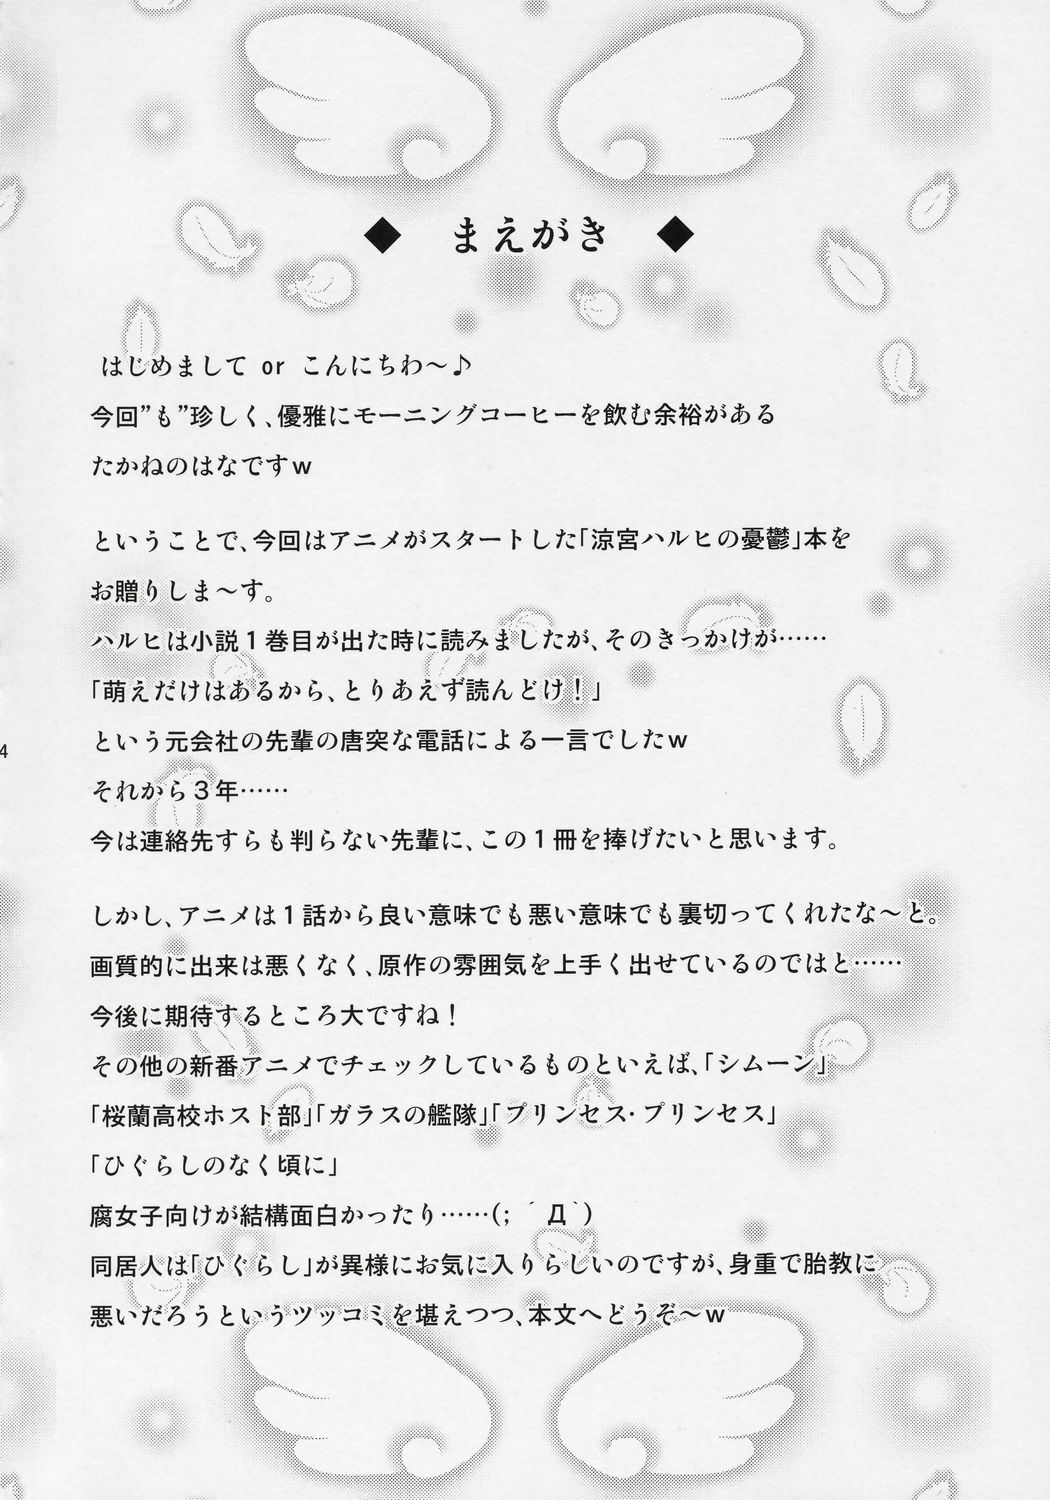 ◆ まえがき ◆
はじめまして or こんにちわ～♪
今回”も”珍しく、優雅にモーニングコーヒーを飲む余裕がある
たかねのはなですｗ
ということで、今回はアニメがスタートした「涼宮ハルヒの憂鬱」本を
お贈りしま～す。
ハルヒは小説１巻目が出た時に読みましたが、そのきっかけが……
「萌えだけはあるから、とりあえず読んどけ！」
という元会社の先輩の唐突な電話による一言でしたｗ
それから３年……
今は連絡先すらも判らない先輩に、この１冊を捧げたいと思います。
しかし、アニメは１話から良い意味でも悪い意味でも裏切ってくれたな～と。
画質的に出来は悪くなく、原作の雰囲気を上手く出せているのではと……
今後に期待するところ大ですね！
その他の新番アニメでチェックしているものといえば、「シムーン」
「桜蘭高校ホスト部」「ガラスの艦隊」「プリンセス・プリンセス」
「ひぐらしのなく頃に」
腐女子向けが結構面白かったり……(; ´Д｀)
同居人は「ひぐらし」が異様にお気に入りらしいのですが、身重で胎教に
悪いだろうというツッコミを堪えつつ、本文へどうぞ～ｗ
4